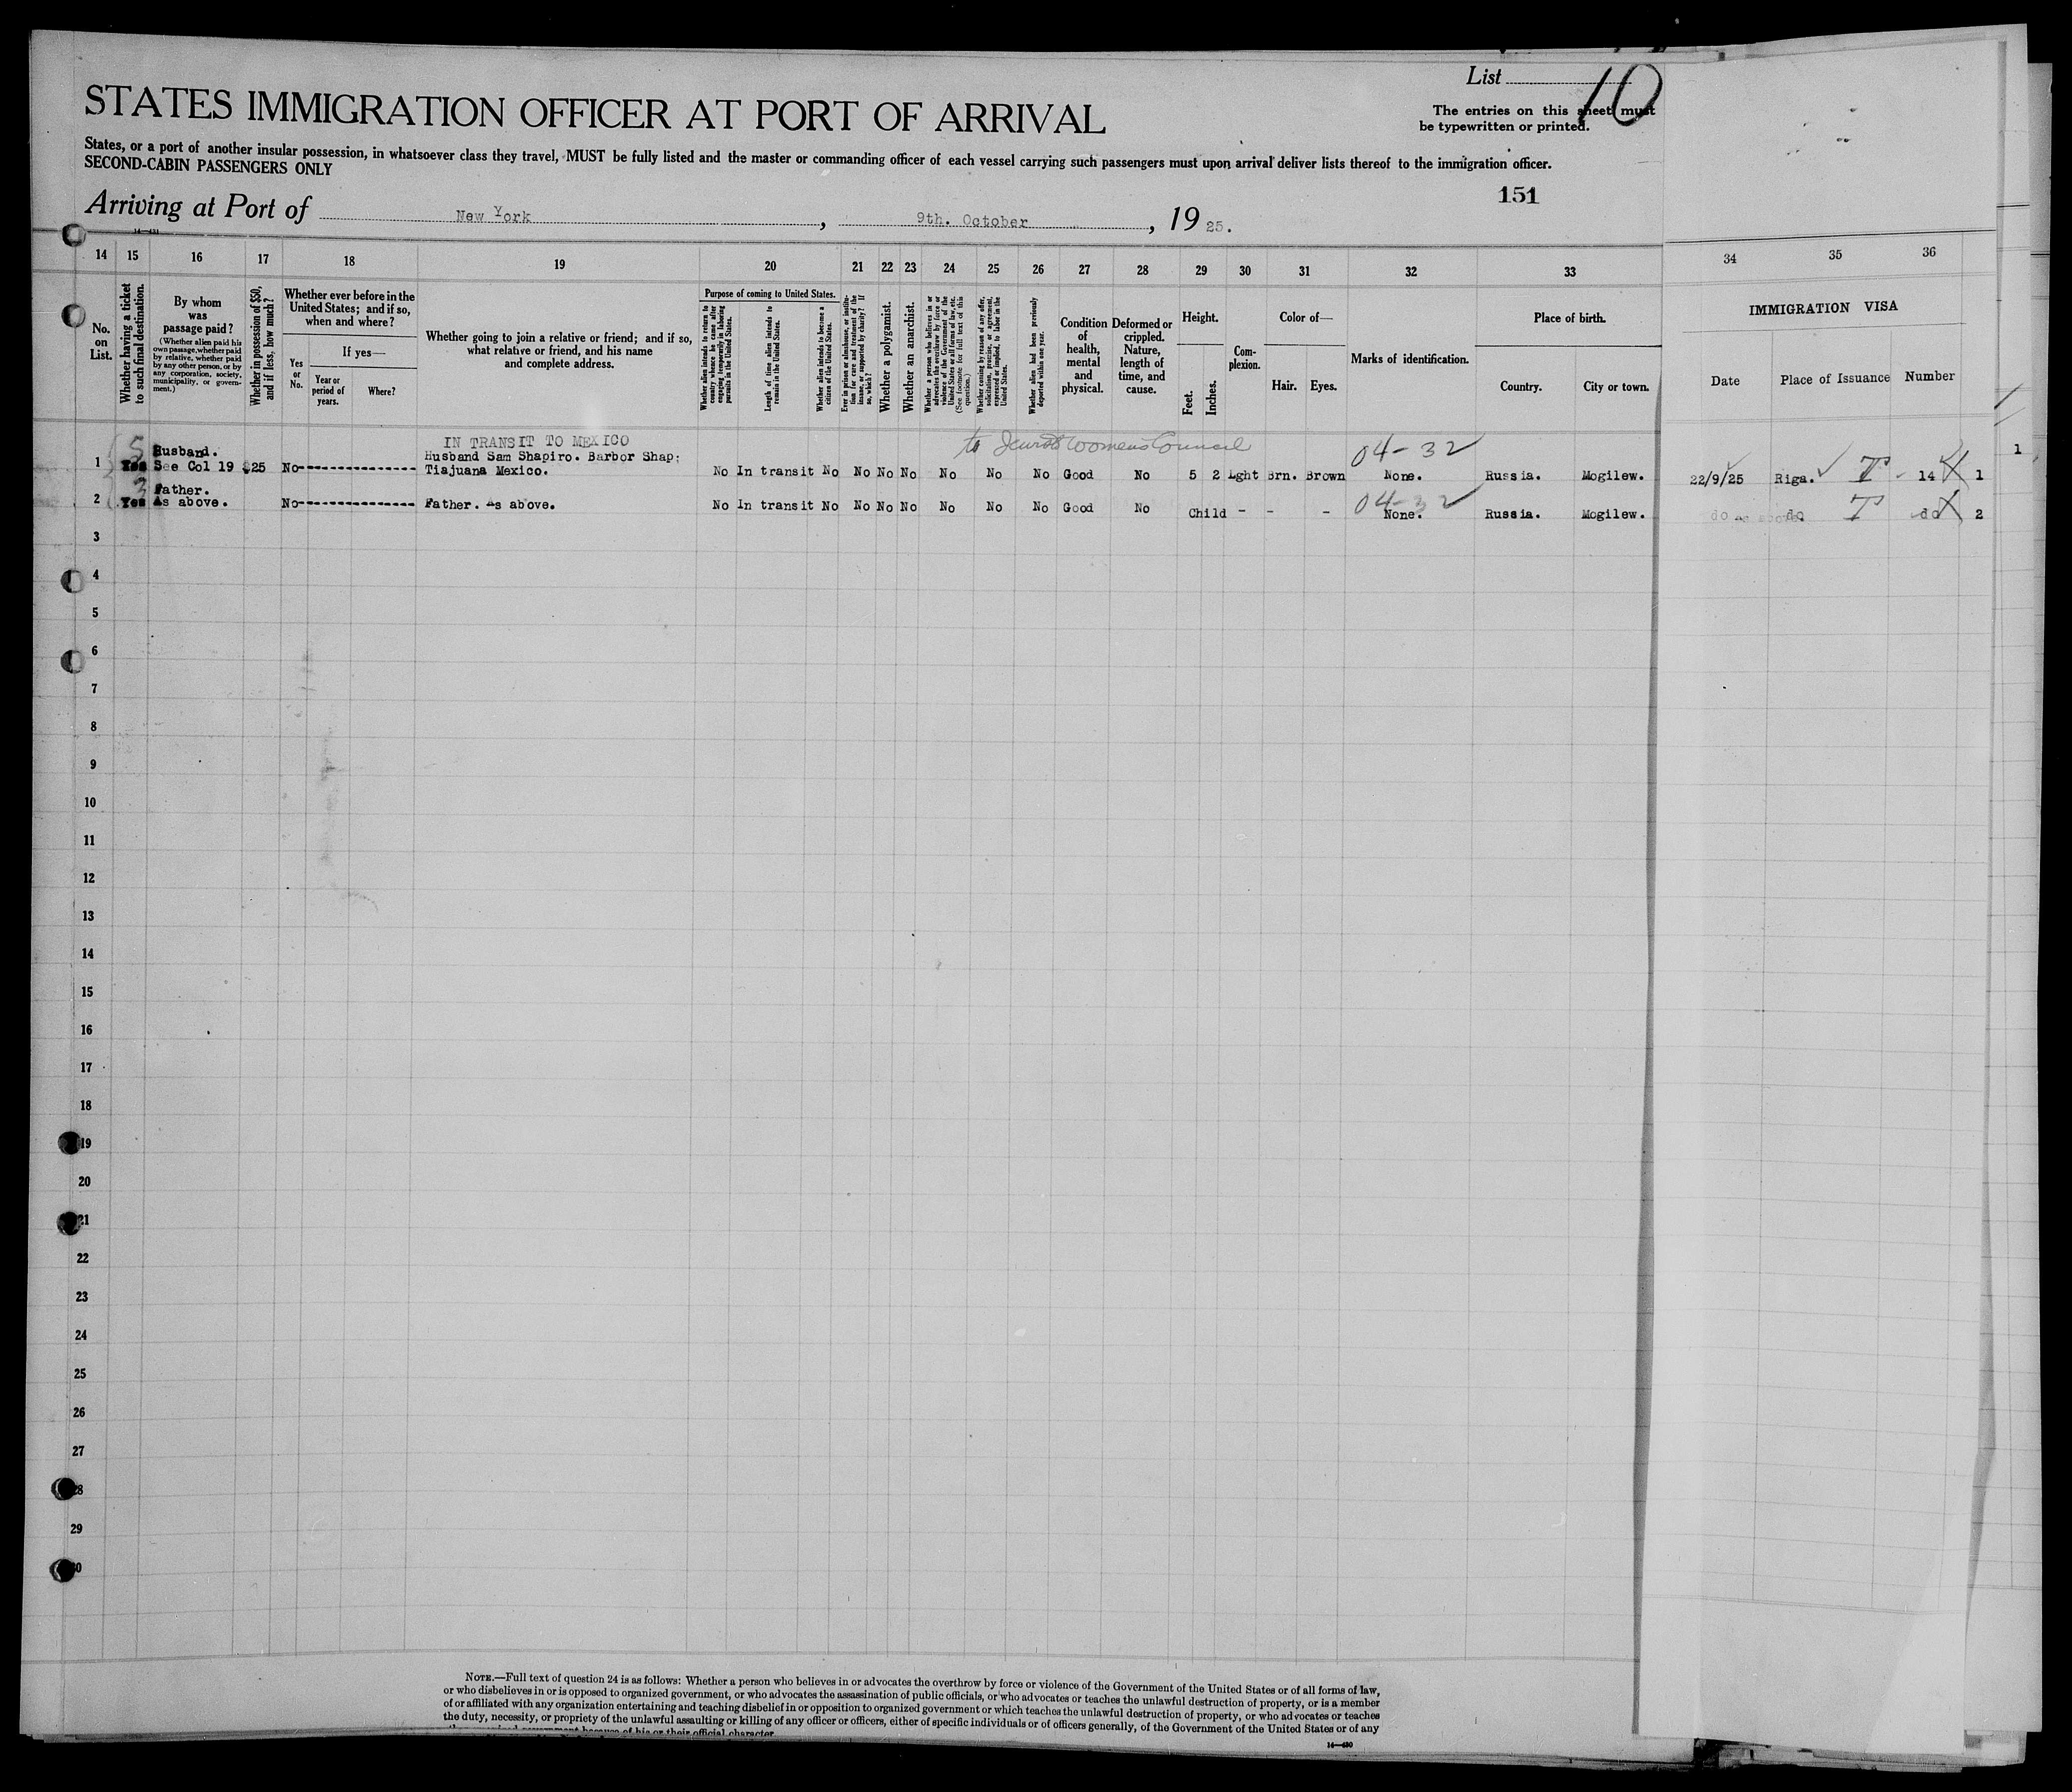 List 10
STATES IMMIGRATION OFFICER AT PORT OF ARRIVAL
The entries on this sheet must
be typewritten or printed.
States, or a port of another insular possession, in whatsoever class they travel, MUST be fully listed and the master or commanding officer of each vessel carrying such passengers must upon arrival deliver lists thereof to the immigration officer.
SECOND-CABIN PASSENGERS ONLY
151
Arriving at Port of New York, 9th. October, 1925.
14—431
14 15 16 17 18 19 20 21 22 23 24 25 26 27 28 29 30 31 32 33 34 35 36
No. on List.
Whether having a ticket to such final destination.
By whom was passage paid?
(Whether alien paid his own passage, whether paid by relative, whether paid by any other person, or by any corporation, society, municipality, or government.)
Whether in possession of $50, and if less, how much?
Whether ever before in the United States; and if so, when and where?
Yes or No.
If yes—
Year or period of years.
Where?
Whether going to join a relative or friend; and if so, what relative or friend, and his name and complete address.
Purpose of coming to United States.
Whether alien intends to return to country whence he came after engaging temporarily in laboring pursuits in the United States.
Length of time alien intends to remain in the United States.
Whether alien intends to become a citizen of the United States.
Ever in prison or almshouse, or institution for care and treatment of the insane, or supported by charity? If so, which?
Whether a polygamist.
Whether an anarchist.
Whether a person who believes in or advocates the overthrow by force or violence of the Government of the United States or all forms of law, etc. (See footnote for full text of this question.)
Whether coming by reason of any offer, solicitation, promise, or agreement, expressed or implied, to labor in the United States.
Whether alien had been previously deported within one year.
Condition of health, mental and physical.
Deformed or crippled. Nature, length of time, and cause.
Height.
Feet. Inches.
Complexion.
Color of—
Hair. Eyes.
Marks of identification.
Place of birth.
Country. City or town.
IMMIGRATION VISA
Date Place of Issuance Number
IN TRANSIT TO MEXICO
to Jewish Womens Council
04-32
1 Yes Husband. See Col 19 $25 No Husband Sam Shapiro. Barbor Shap;
Tiajuana Mexico. No In transit No No No No No No No Good No 5 2 Lght Brn. Brown None. Russia. Mogilew. 22/9/25 Riga. T 14 1
04-32
2 Yes Father. As above. No Father. As above. No In transit No No No No No No No Good No Child - - - None. Russia. Mogilew. do do T do 2
3
4
5
6
7
8
9
10
11
12
13
14
15
16
17
18
19
20
21
22
23
24
25
26
27
28
29
30
NOTE.—Full text of question 24 is as follows: Whether a person who believes in or advocates the overthrow by force or violence of the Government of the United States or of all forms of law,
or who disbelieves in or is opposed to organized government, or who advocates the assassination of public officials, or who advocates or teaches the unlawful destruction of property, or is a member
of or affiliated with any organization entertaining and teaching disbelief in or opposition to organized government or which teaches the unlawful destruction of property, or who advocates or teaches
the duty, necessity, or propriety of the unlawful assaulting or killing of any officer or officers, either of specific individuals or of officers generally, of the Government of the United States or of any
government because of his or their official character.
14—430